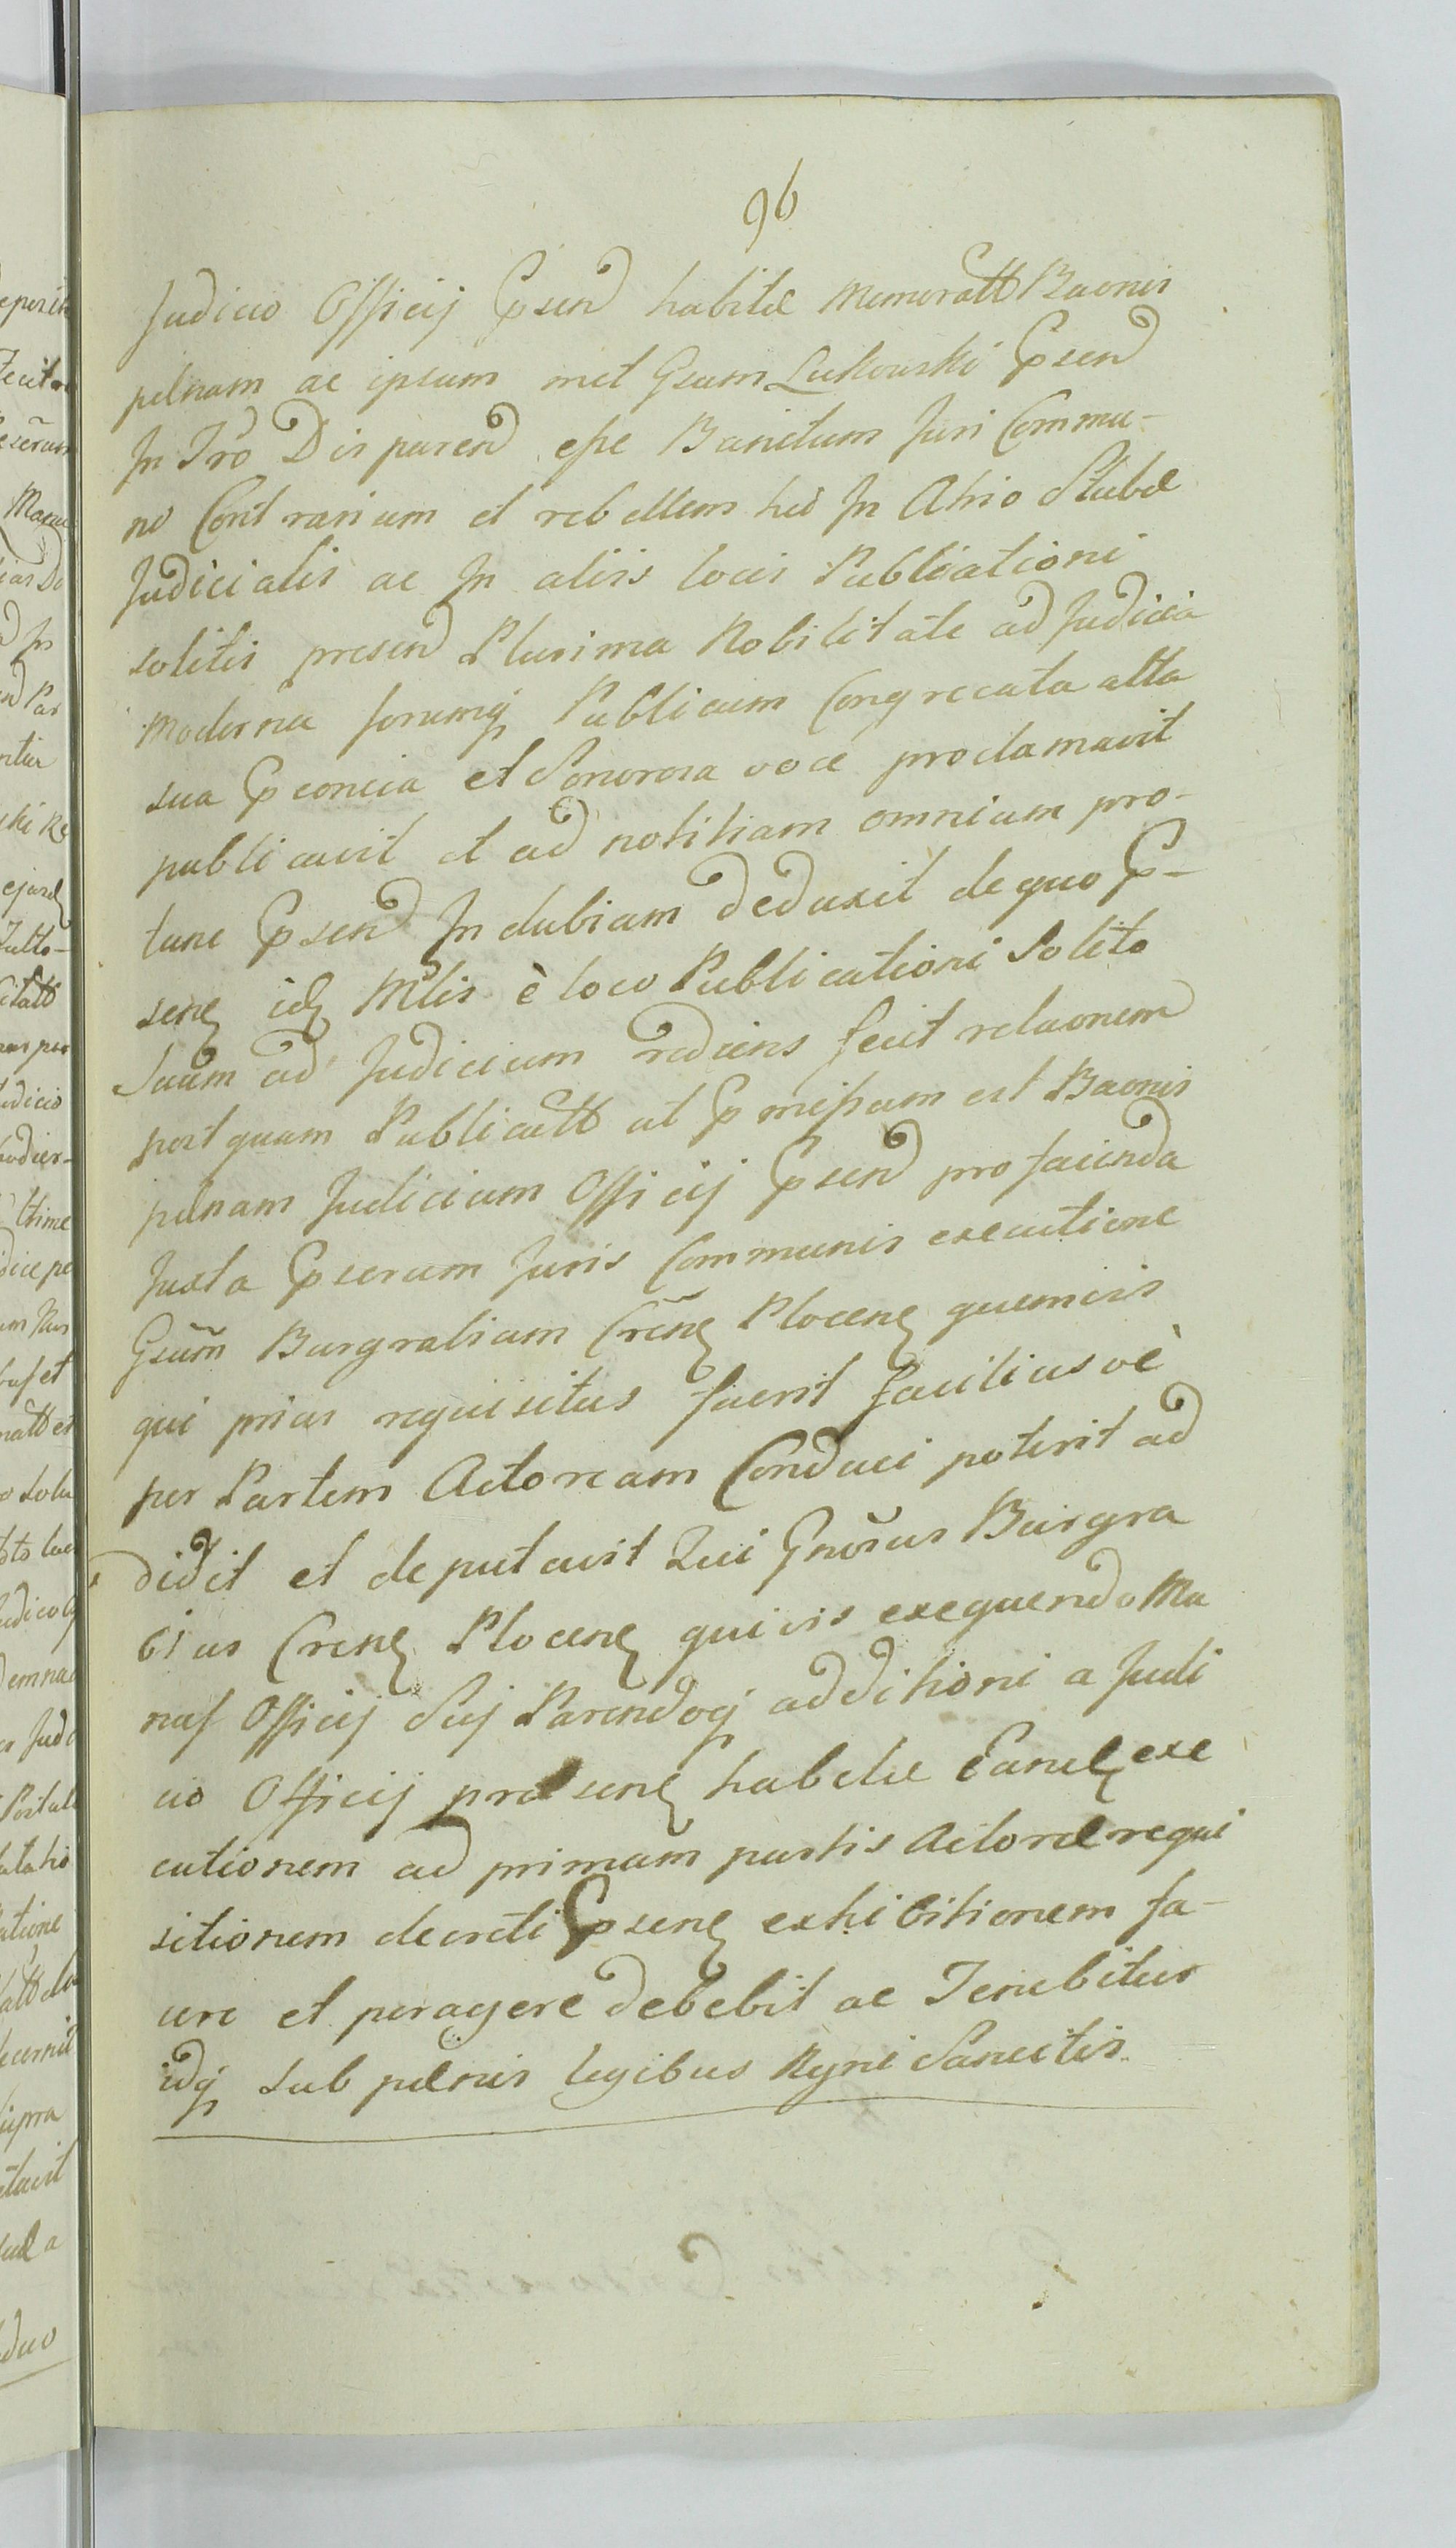 96
Judicio Officij Psen habitæ Memoratt Baonis
pænam ac ipsum met Gsum Lukowski Psen
In Tro Disparen esse Banitum Juri Commu-
no Contrarium et rebellem hic In Atrio Stubæ
Judicialis ac In aliis locis Publicationi
solitis presen Plurima Nobilitate ad Judicia
Moderna forumq Publicum Congrecata alta
sua Pconcia et Sonorosa voce proclamavit
publicavit et ad notitiam omnium pro-
tunc Psen Indubiam deduxit de quo P-
sen id Mlis è loco Publicationi Solito
Suum ad Judicium rediens fecit relaonem
postquam Publicatt ut Pmissum est Baonis
pænam Judicium Officij Psen pro facienda
Juxta Pserum Juris Communis executione
Gsum Burgrabium Cren Plocen quemvis
qui prius requisitus fuerit faciliusvè
per Partem Actoream Conduci poterit ad
didit et deputavit Qui Gnosus Burgra
bius Cren Plocen quivis exequendo Mu
nus Officij Sui Parendoq additioni a Judi
cio Officij præsen habitæ Eand exe
cutionem ad primam partis Actoræ requi
sitionem decreti Psen exhibitionem fa-
cere et peragere debebit ac Tenebitur
idq sub pænis legibus Regni Sancitis.